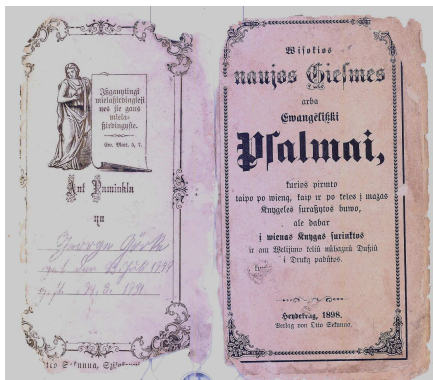 Ißganytingi
mielaßirdingieji
nes jie gaus
miela-
ßirdingyſtę.
Ew. Matt. 5, 7.
Ant Paminkla
nů
George
1898
1891
Otto Sekunna,
Wiſokios
naujos Gieſmes
arba
Ewangėliſzki
Pſalmai,
kurios pirmto
taipo po wieną, kaip ir po keles į mażas
Knygeles ſuraßytos buwo,
ale dabar
į wienas Knygas ſurinktos
ir ant Welijimo tołių nůbażnů Dußiů
i Druką padůtos.
Heydekrug, 1898.
Verlag von Otto Sekunna.